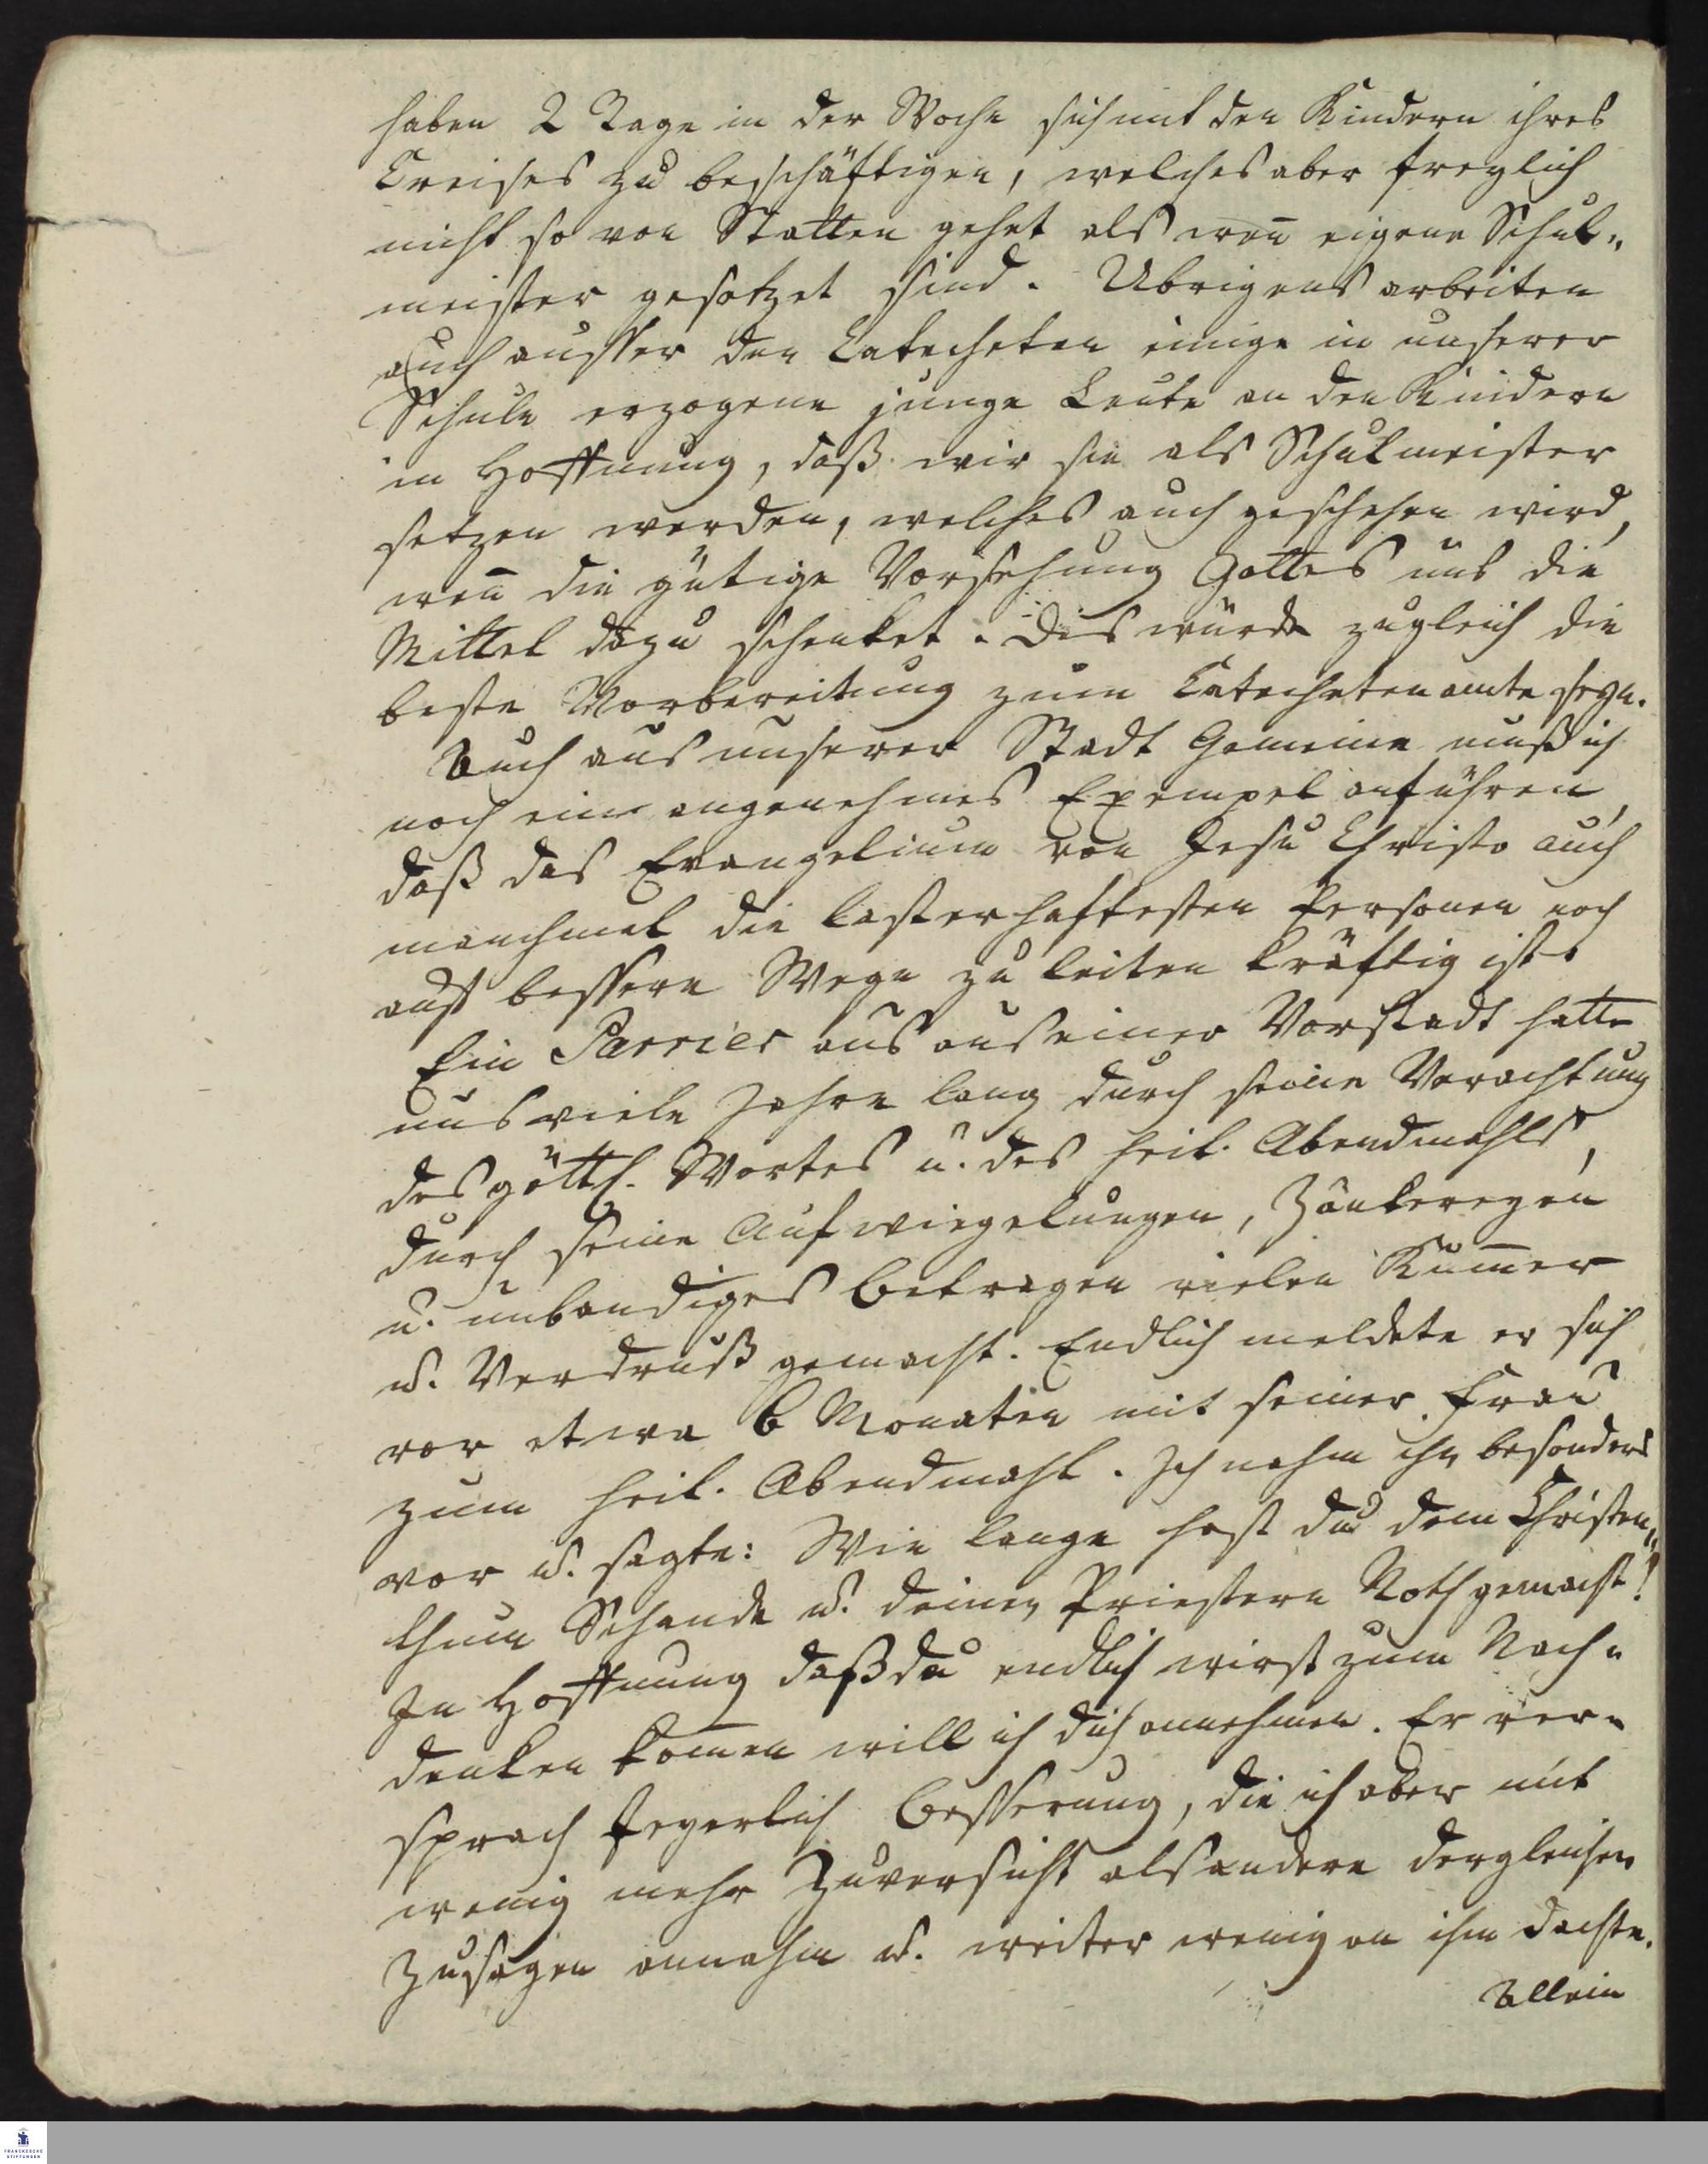 haben 2 Tage in der Woche sich mit den Kindern ihres
Creises zu beschäftigen, welches aber freylich
nicht so von Statten gehet als wen̄ eigene Schul„
meister gesetzet sind. Übrigens arbeiten
auch ausser den Catecheten einige in unserer
Schule erzogene junge Leute an den Kindern
in Hoffnung, daß wir sie als Schulmeister
setzen werden, welches auch geschehen wird,
wen̄ die gütige Vorsehung Gottes uns die
Mittel dazu schenket. Dis würde zugleich die
beste Vorbereitung zum Catechetenamte seyn.
Auch aus unserer Stadt Gemeine muß ich
noch ein angenehmes Exempel anführen,
daß das Evangelium von Jesu Christo auch
manchmal die lasterhaftesten Personen noch
auf bessere Wege zu leiten kräftig ist.
Ein Parrier aus aus einer Vorstadt hatte
uns viele Jahre lang durch seine Verachtung
des göttl. Wortes u. des heil. Abendmahls,
durch seine Aufwiegelungen, Zänkereyen
u. unbandiges Betragen vielen Kum̄er
u. Verdruß gemacht. Endlich meldete er sich
vor etwa 6 Monaten mit seiner Frau
zum heil. Abendmahl. Ich nahm ihn besonders
vor u. sagte: Wie lange hast du dem Christen„
thum Schande u. deinen Priestern Noth gemacht!
In Hoffnung daß du endlich wirst zum Nach„
denken kom̄en will ich dich annehmen. Er ver„
sprach feyerlich Besserung, die ich aber mit
wenig mehr Zuversicht als andere dergleichen
Zusagen annahm u. weiter wenig an ihn dachte.
Allein
FRANCKESCHE
STIFTUNGEN